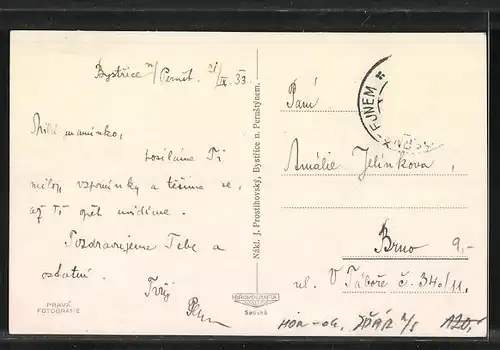 Bystřice n/ Pernšt. 21/IX. 33.
Milá maminko,
posíláme Ti
milou vzpomínku a těšíme se,
až Tě opět uvidíme.
Pozdravujeme Tebe a
ostatní.
Tvůj
PRAVÁ
FOTOGRAFIE
Nákl. J. Prostihovský, Bystřice n. Pernštýnem.
GRAFO
Seutská
Paní
Amálie Jelínkova,
Brno 9,-
ul. V Táboře č. 340/11.
HOR-OG. ŽĎÁR n/S A20,-